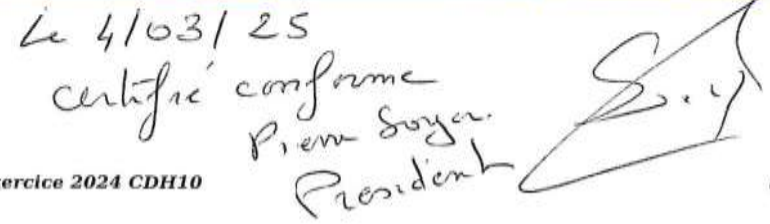 Le 4/03/25
certifié conforme
Pierre Soyer.
Président
ercice 2024 CDH10